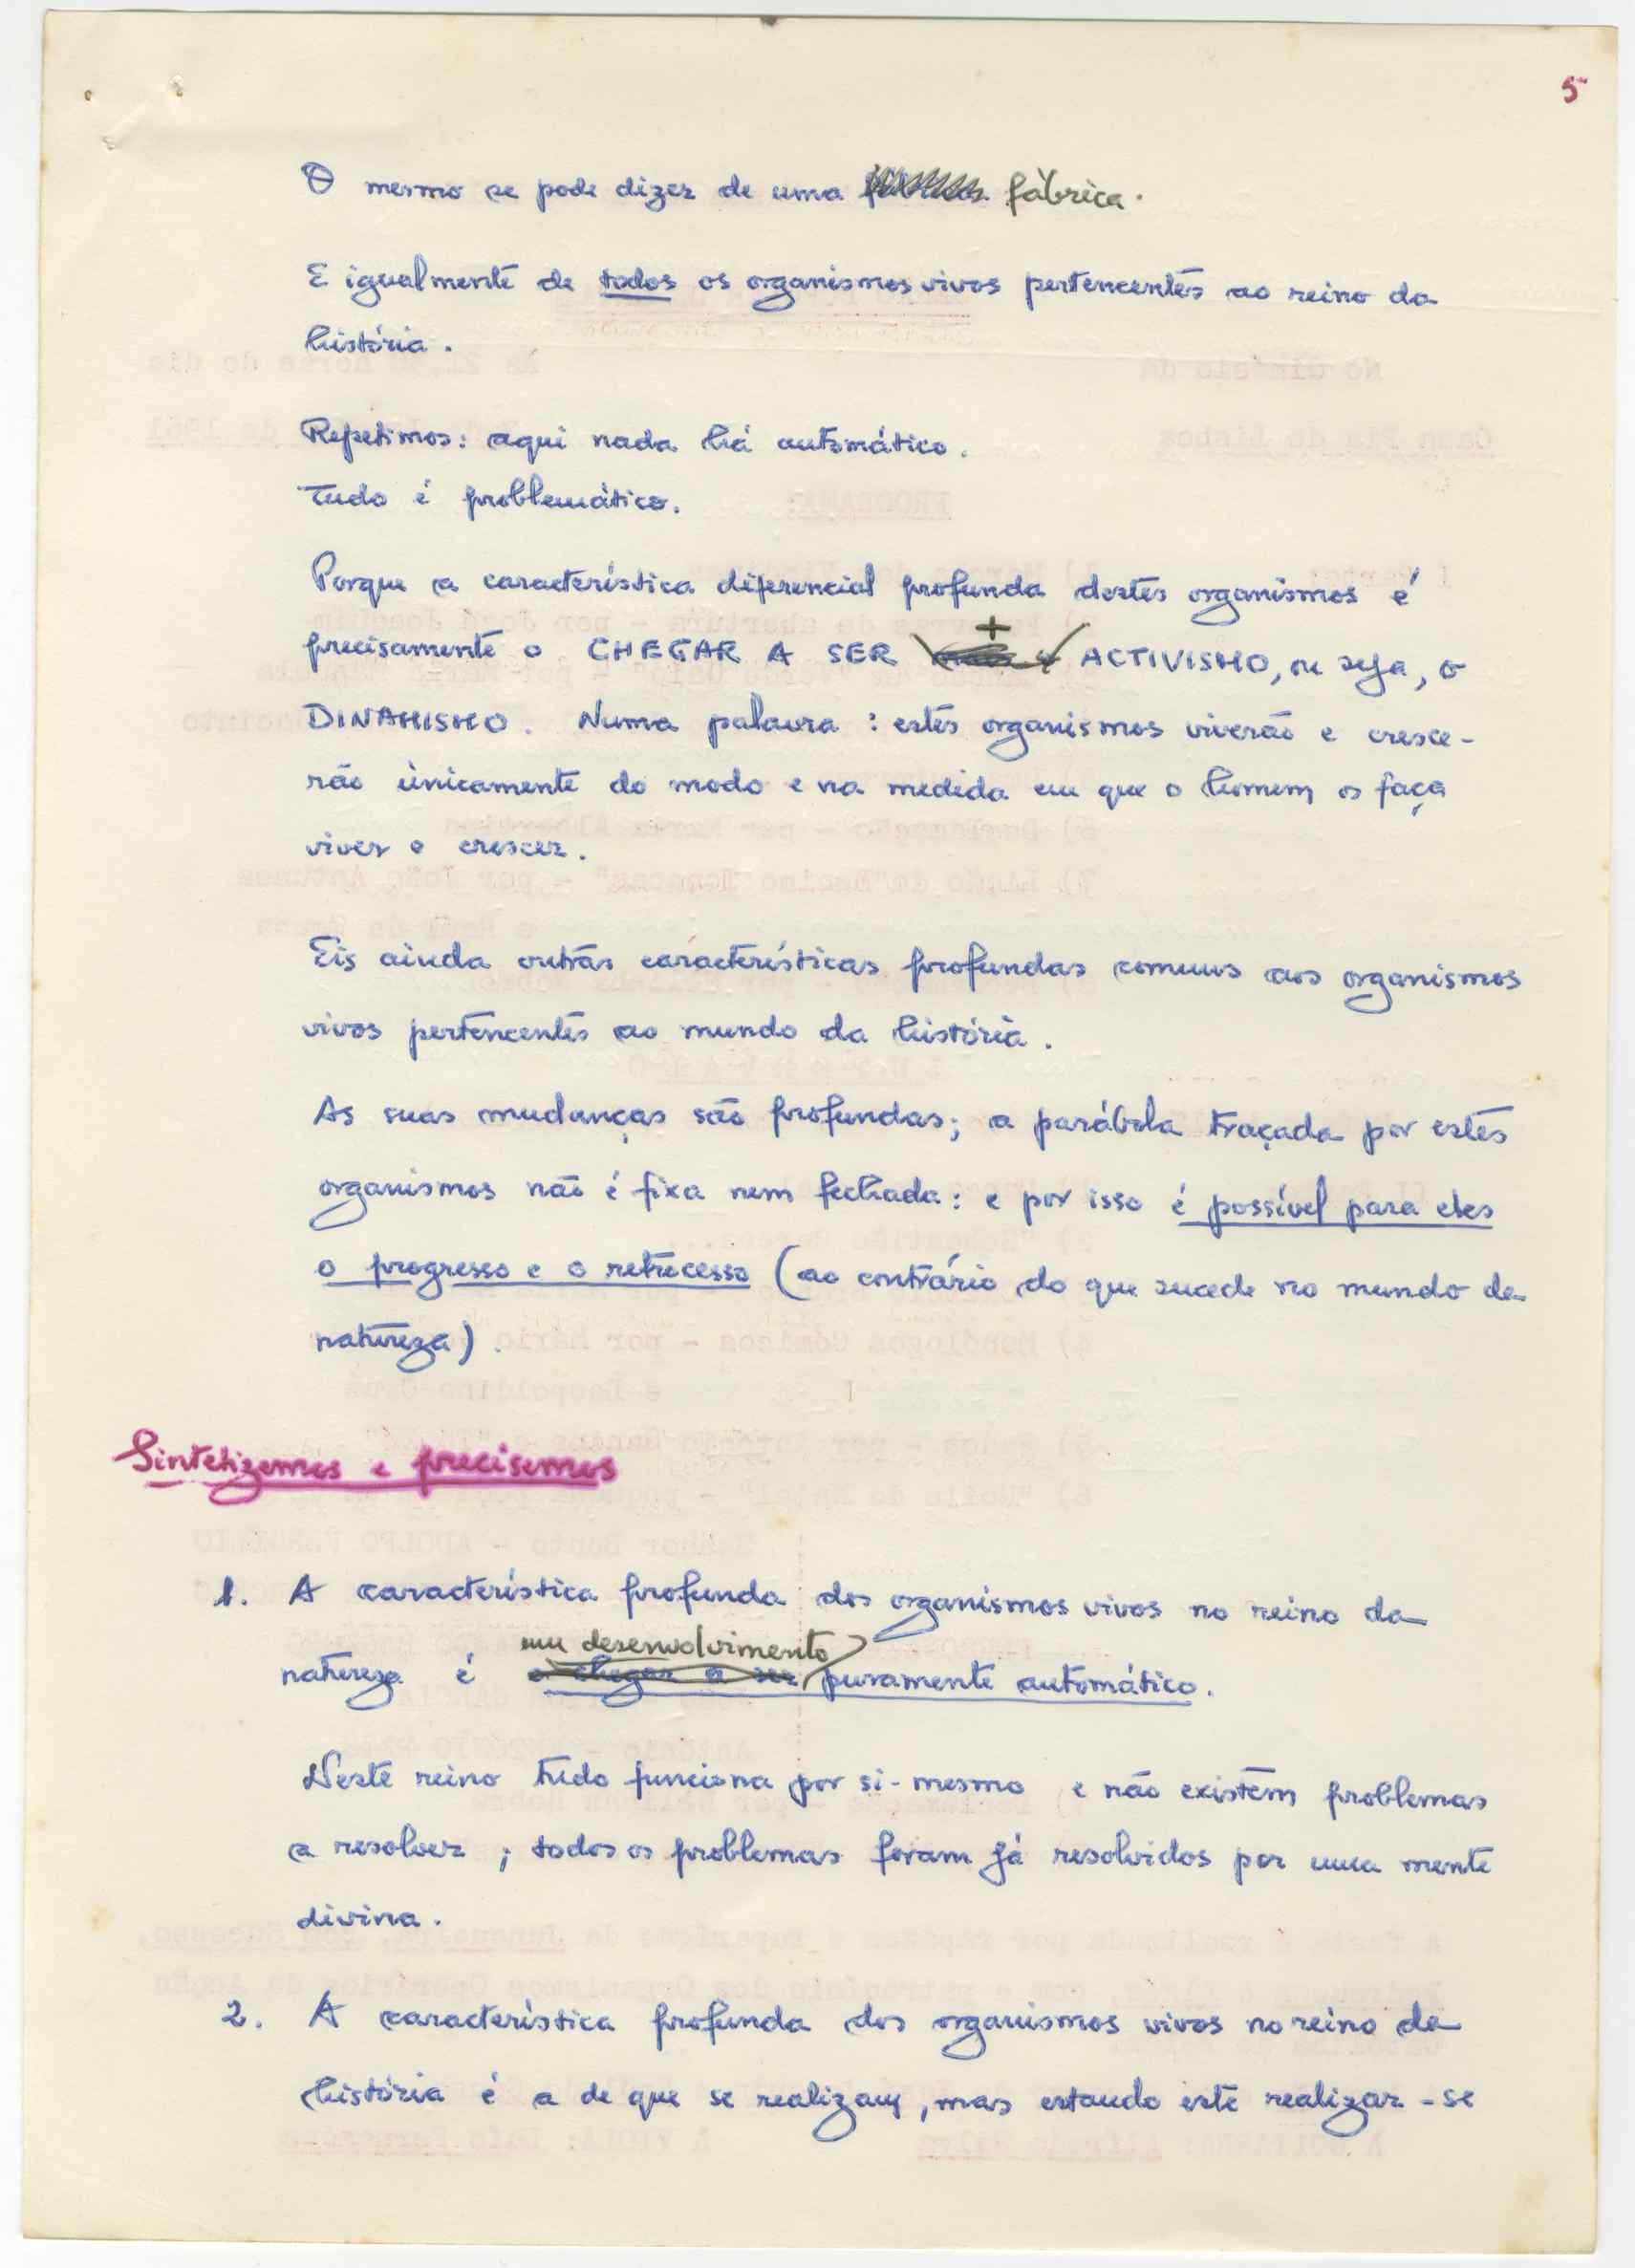 5
O mesmo se pode dizer de uma fábrica.
E igualmente de todos os organismos vivos pertencentes ao reino da
história.
Repetimos: aqui nada há automático.
Tudo é problemático.
Porque a característica diferencial profunda destes organismos é
precisamente o CHEGAR A SER + ACTIVISMO, ou seja, o
DINAMISMO. Numa palavra: estes organismos viverão e cresce-
rão ùnicamente do modo e na medida em que o homem os faça
viver e crescer.
Eis ainda outras características profundas comuns aos organismos
vivos pertencentes ao mundo da história.
As suas mudanças são profundas; a parábola traçada por estes
organismos não é fixa nem fechada: e por isso é possível para eles
o progresso e o retrocesso (ao contrário do que sucede no mundo da
natureza).
Sintetizemos e precisemos
1. A característica profunda dos organismos vivos no reino da
um desenvolvimento
natureza é o chegar a ser puramente automático.
Neste reino tudo funciona por si-mesmo e não existem problemas
a resolver; todos os problemas foram já resolvidos por uma mente
divina.
2. A característica profunda dos organismos vivos no reino da
história é a de que se realizam, mas estando este realizar-se